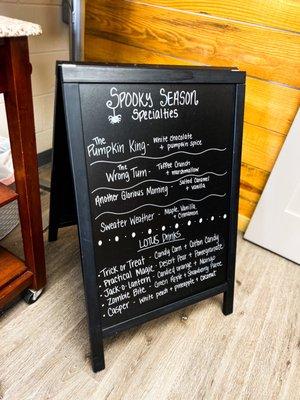 Spooky Season
Specialties
The Pumpkin King - White chocolate
+ pumpkin spice
The Wrong Turn - Toffee Crunch
+ marshmallow
Another Glorious Morning - Salted Caramel
+ vanilla
Sweater Weather - Maple, Vanilla
+ Cinnamon
Lotus Drinks
• Trick or Treat - Candy Corn + Cotton Candy
• Practical Magic - Desert Pear + Pomegranate
• Jack-o-lantern - Candied orange + Mango
• Zombie Bite - Green Apple + Strawberry Puree
• Casper - White peach + pineapple + coconut